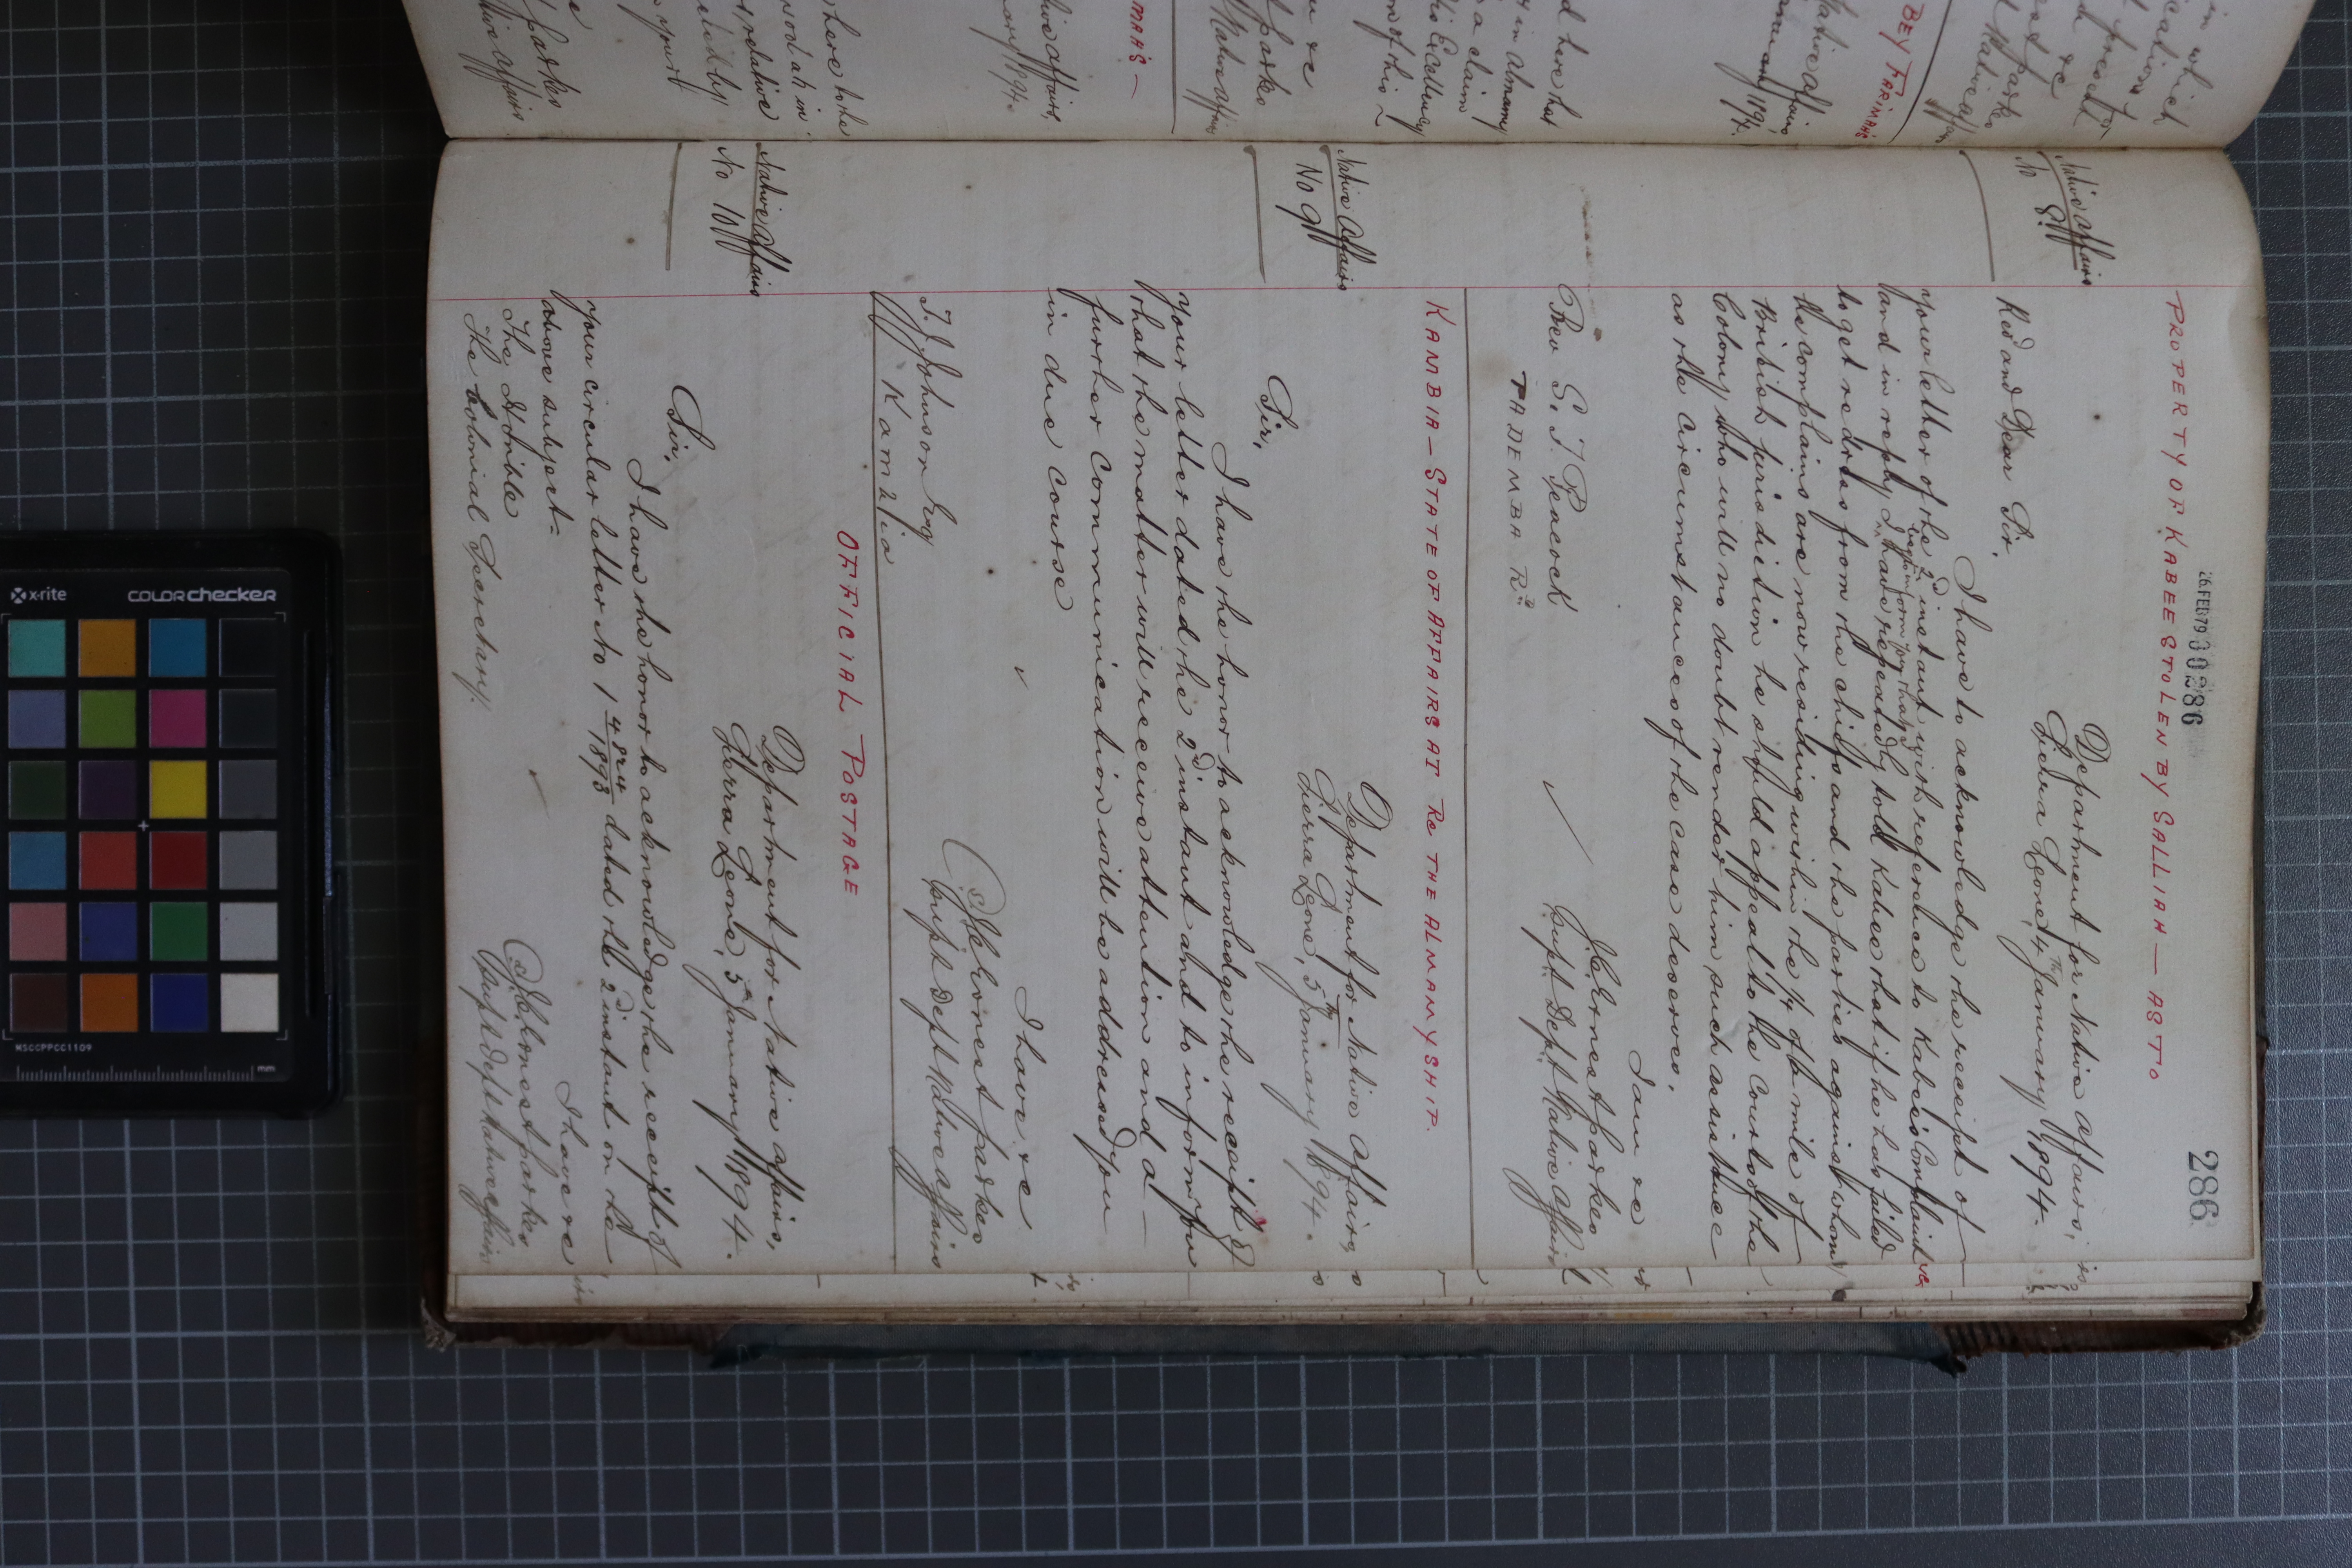 286
26.FEB79 30286
PROPERTY OF KABEE STOLEN BY SALLIAH — AS TO
Native Affairs
No 8.
Department for Native Affairs,
Sierra Leone, 4th January 1894.
Revd and Dear Sir,
I have to acknowledge the receipt of
your letter of the 2d instant with reference to Kabee's Complaint
and in reply I beg to inform you that I have repeatedly told Kabee that if he has failed
to get redress from the chiefs and the parties against whom
he complains are now residing within the 1/4 of a mile of
British jurisdiction he should appeal to the Courts of the
Colony who will no doubt render him such assistance
as the circumstances of the case deserves.
I am &c
J C Ernest Parkes
Supt Dept Native Affairs
Rev S. J. Peacock
TADEMBA Ra
KAMBIA — STATE OF AFFAIRS AT Re THE ALMAMYSHIP.
Native Affairs
No 9
Department for Native Affairs,
Sierra Leone, 5th January 1894.
Sir,
I have the honor to acknowledge the receipt of
your letter dated the 2d instant and to inform you
that the matter will receive attention and a —
further communication will be addressed you
in due course
I have &c
J C Ernest Parkes
Supt Dept Native Affairs
T. J. Johnson Esq
Kambia
OFFICIAL POSTAGE
Native Affairs
No 10
Department for Native Affairs,
Sierra Leone, 5th January 1894.
Sir,
I have the honor to acknowledge the receipt of
your circular letter No 1 4824/1893 dated the 2d instant on the
above subject-
I have &c
J C Ernest Parkes
Supt Dept Native Affairs
The Honble
The Colonial Secretary.
x-rite
COLORchecker
MSCCPPCC1109
mm